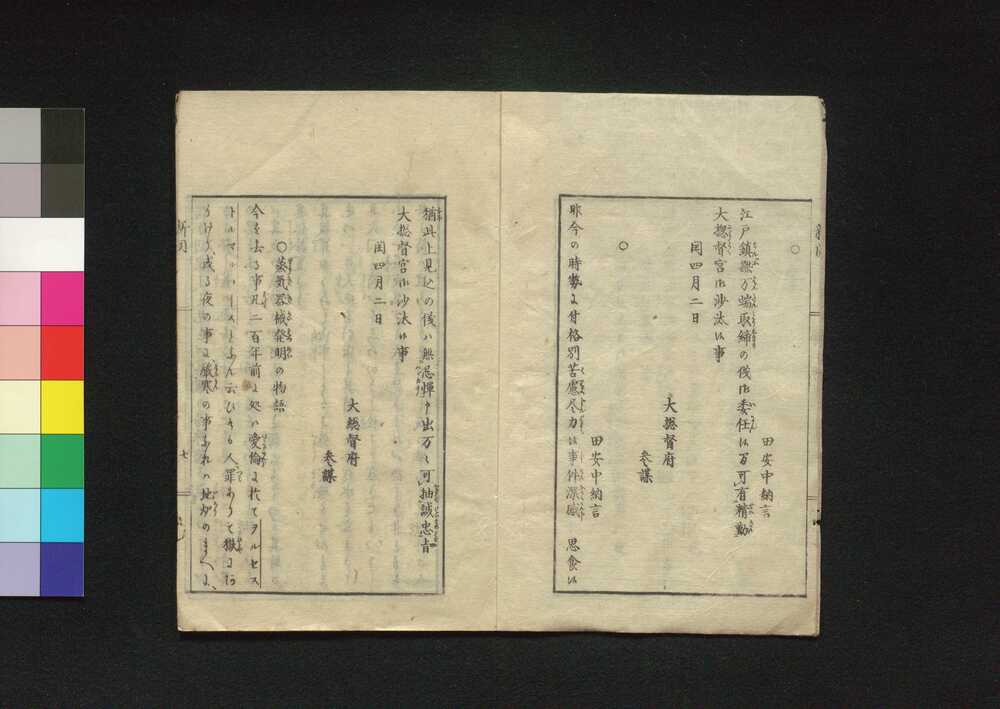 ○
田安中納言
江戸鎮撫万端取締の儀御委任は万可有精勤
大総督宮御沙汰候事
閏四月二日
大総督府
参謀
○
田安中納言
昨今の時勢に付格別苦慮尽力候事件深感 思食候
猶此上見込の儀ハ無忌憚申出万々可抽誠忠旨
大総督宮御沙汰候事
閏四月二日
大総督府
参謀
○蒸気器械発明の物語
今を去る事凡二百年前に処ハ愛倫に於てヲルセス
人罪ありて獄に
或る夜の事に厳寒の事なれハ
新聞
七